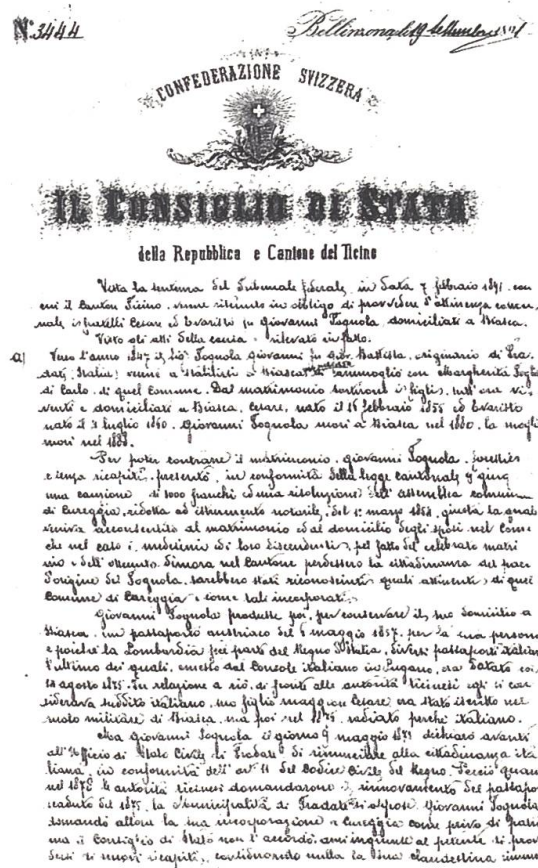 N° 3444
Bellinzona, li 19 settembre 1891
CONFEDERAZIONE SVIZZERA
IL CONSIGLIO DI STATO
della Repubblica e Cantone del Ticino
Vista la sentenza del Tribunale federale in data 7 febbraio 1891 con
cui il Canton Ticino venne ritenuto in obbligo di provvedere d'attinenza comu
nale i fratelli Cesare ed Evaristo fu Giovanni Tognola, domiciliati a Biasca.
Visto gli atti della causa e rilevato in fatto.
a) Verso l'anno 1847 il sig. Tognola Giovanni fu Gio. Battista, originario di Tra
date, Italia, venne a stabilirsi a Biasca ammogliò con Margherita
di Carlo, di quel Comune. Dal matrimonio sortirono i figli, tutt'ora vi
venti e domiciliati a Biasca, Cesare, nato il 16 febbraio 1855 ed Evaristo
nato il 3 luglio 1860. Giovanni Tognola morì a Biasca nel 1880, la moglie
morì nel
Per poter contrarre il matrimonio, Giovanni Tognola, forestiero
e senza ricapiti, presentò, in conformità della legge cantonale
una cauzione di 1000 franchi ed una risoluzione dell'assemblea comun
di Cureggia, ridotta ad istrumento notarile, del 1° marzo 1854, giusta la quale
veniva acconsentito al matrimonio ed al domicilio degli sposi nel Comune
che nel caso i medesimi ed i loro discendenti, pel fatto del celebrato matri
nio e dell'ottenuta dimora nel Cantone perdessero la cittadinanza del paese
d'origine del Tognola, sarebbero stati riconosciuti quali attinenti di quel
Comune di Cureggia e come tali incorporati.
Giovanni Tognola produsse poi, per conservare il suo domicilio a
Biasca, un passaporto austriaco del 6 maggio 1857, per la sua persona
e poichè la Lombardia fece parte del Regno d'Italia, diversi passaporti italiani
l'ultimo dei quali, emesso dal Console italiano in Lugano, era datato
14 agosto 1875. In relazione a ciò, di fronte alle autorità ticinesi egli si con
siderava suddito italiano, suo figlio maggiore Cesare era stato iscritto nel
ruolo militare di Biasca, ma poi nel 1875, radiato perchè italiano.
Ma Giovanni Tognola il giorno 9 maggio 1871 dichiarò avanti
all'Officio di Stato Civile di Tradate di rinunciare alla cittadinanza ita
liana, in conformità dell'art. 11 del Codice Civile del Regno. Perciò quando
nel 1878 le autorità ticinesi domandarono il rinnovamento del passaporto
scaduto del 1875, la Municipalità di Tradate si oppose. Giovanni Tognola
domandò allora la sua incorporazione a Cureggia come privo di patria
ma il Consiglio di Stato non l'accordò, anzi ingiunse al petente di prov
dersi di nuovi ricapiti, considerando nulla la sua clandestina